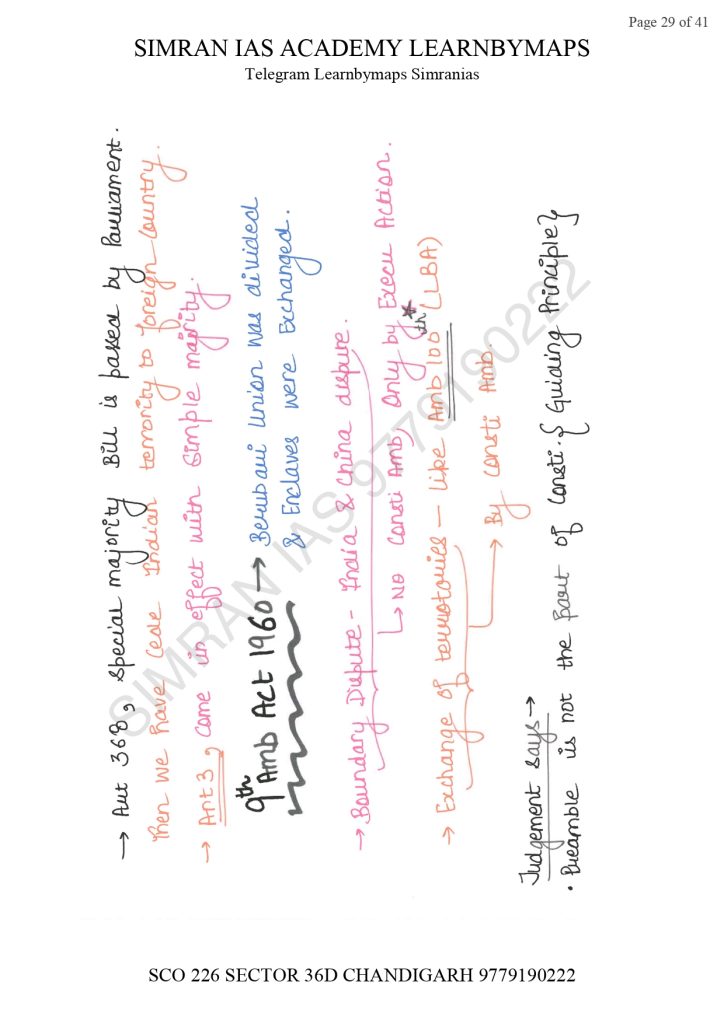 Page 29 of 41
SIMRAN IAS ACADEMY LEARNBYMAPS
Telegram Learnbymaps Simranias
→ Art 368, special majority Bill is passed by Parliament.
Then we have Cede Indian terrority to foreign Country.
→ Art 3, come in effect with simple majority.
9th Amb Act 1960 → Berubari Union was divided
& Enclaves were Exchanged.
→ Boundary Dispute - India & China dispute.
↳ No Consti Amb, Only by Execu Action.
→ Exchange of terrotories - like Amb 100th (LBA)
→ By Consti Amb.
Judgement says →
• Preamble is not the Part of Consti. {Guiding Principle}
SIMRAN IAS 9779190222
SCO 226 SECTOR 36D CHANDIGARH 9779190222